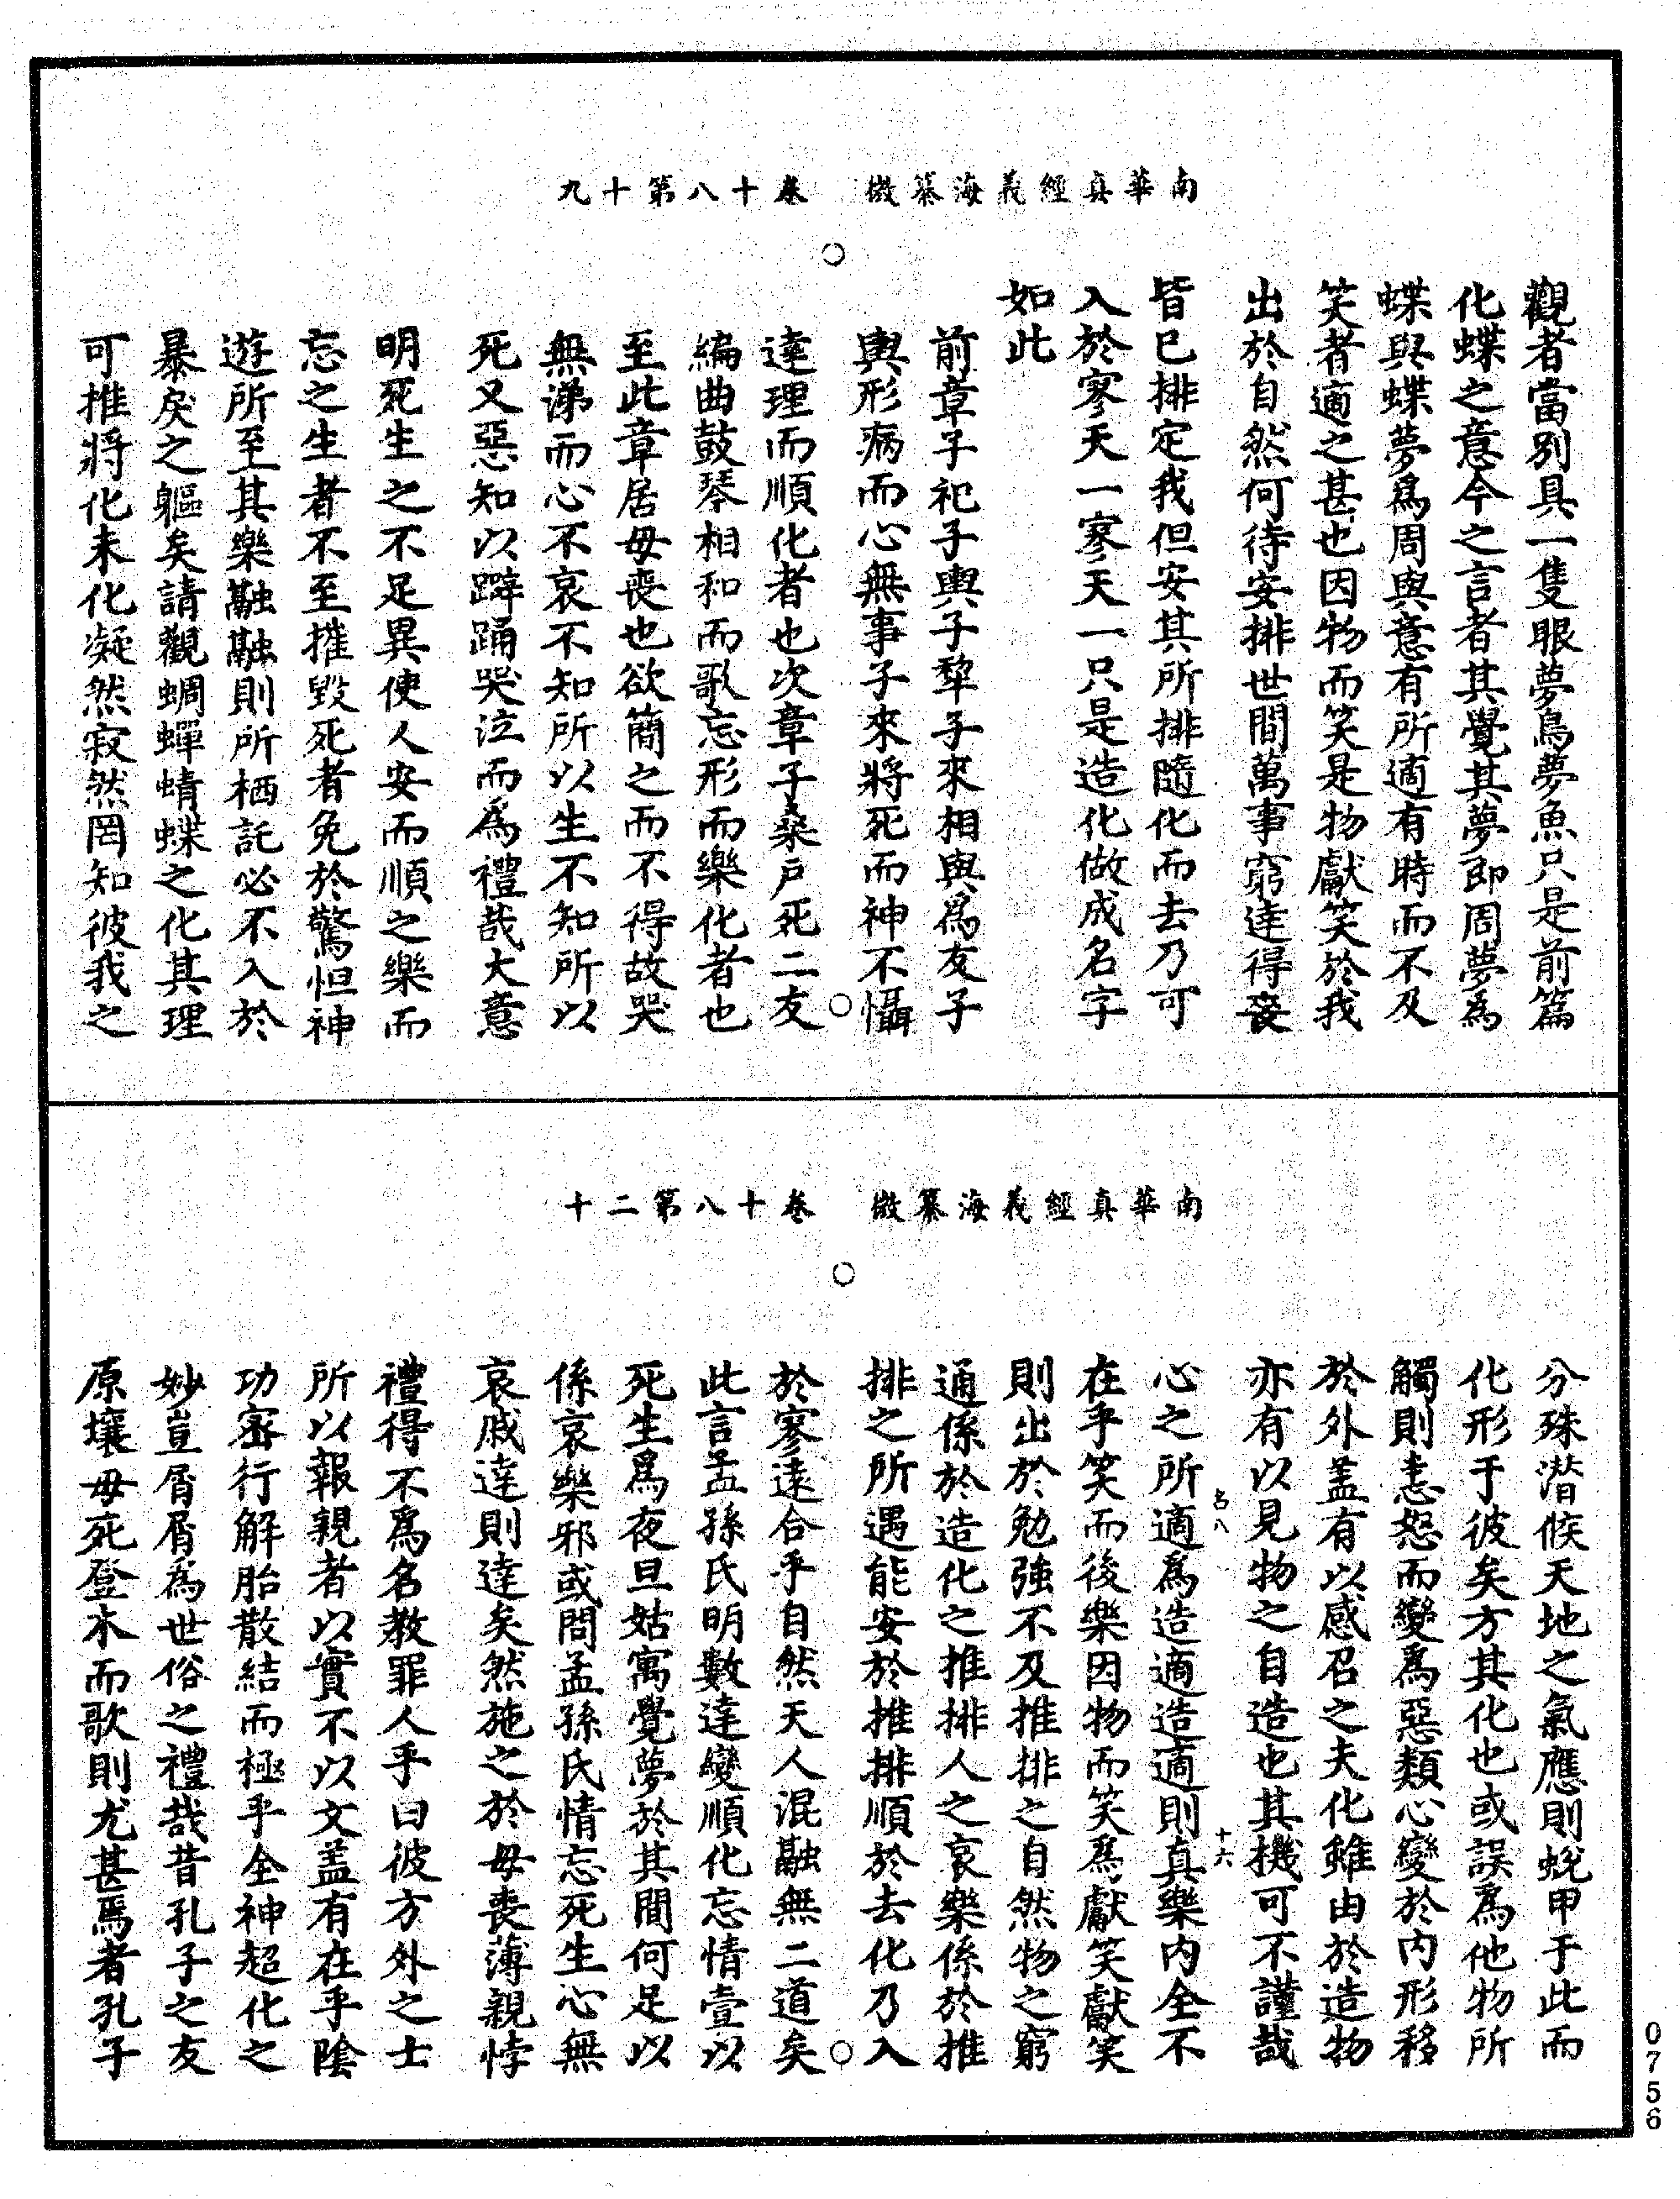 南華真經義海纂微　卷十八第十九
觀者當別具一隻眼夢鳥夢魚只是前篇
化蝶之意今之言者其覺其夢即周夢為
蝶與蝶夢爲周與意有所適有時而不及
笑者適之甚也因物而笑是物獻笑於我
出於自然何待安排世間萬事窮達得喪
皆已排定我但安其所排隨化而去乃可
入於寥天一寥天一只是造化做成名字
如此
前章子祀子輿子犂子來相與爲友子
輿形病而心無事子來將死而神不懾
達理而順化者也次章子桑戶死二友
編曲鼓琴相和而歌忘形而樂化者也
至此章居母喪也欲簡之而不得故哭
無涕而心不哀不知所以生不知所以
死又惡知以辟踊哭泣而爲禮哉大意
明死生之不足異使人安而順之樂而
忘之生者不至摧毀死者免於驚怛神
遊所至其樂融融則所栖託必不入於
暴戾之軀矣請觀蜩蟬蜻蝶之化其理
可推將化未化凝然寂然罔知彼我之
南華真經義海纂微　卷十八第二十
分殊潛候天地之氣應則蛻甲于此而
化形于彼矣方其化也或誤爲他物所
觸則恚怒而變爲惡類心變於內形移
於外盖有以感召之夫化雖由於造物
亦有以見物之自造也其機可不謹哉
名八　十六
心之所適爲造適造適則真樂內全不
在乎笑而後樂因物而笑爲獻笑獻笑
則出於勉強不及推排之自然物之窮
通係於造化之推排人之哀樂係於推
排之所遇能安於推排順於去化乃入
於寥遠合乎自然天人混融無二道矣
此言孟孫氏明數達變順化忘情壹以
死生爲夜旦姑寓覺夢於其間何足以
係哀樂邪或問孟孫氏情忘死生心無
哀戚達則達矣然施之於母喪薄親悖
禮得不爲名教罪人乎曰彼方外之士
所以報親者以實不以文盖有在乎陰
功密行解胎散結而極乎全神超化之
妙豈屑屑爲世俗之禮哉昔孔子之友
原壤母死登木而歌則尤甚焉者孔子
0756